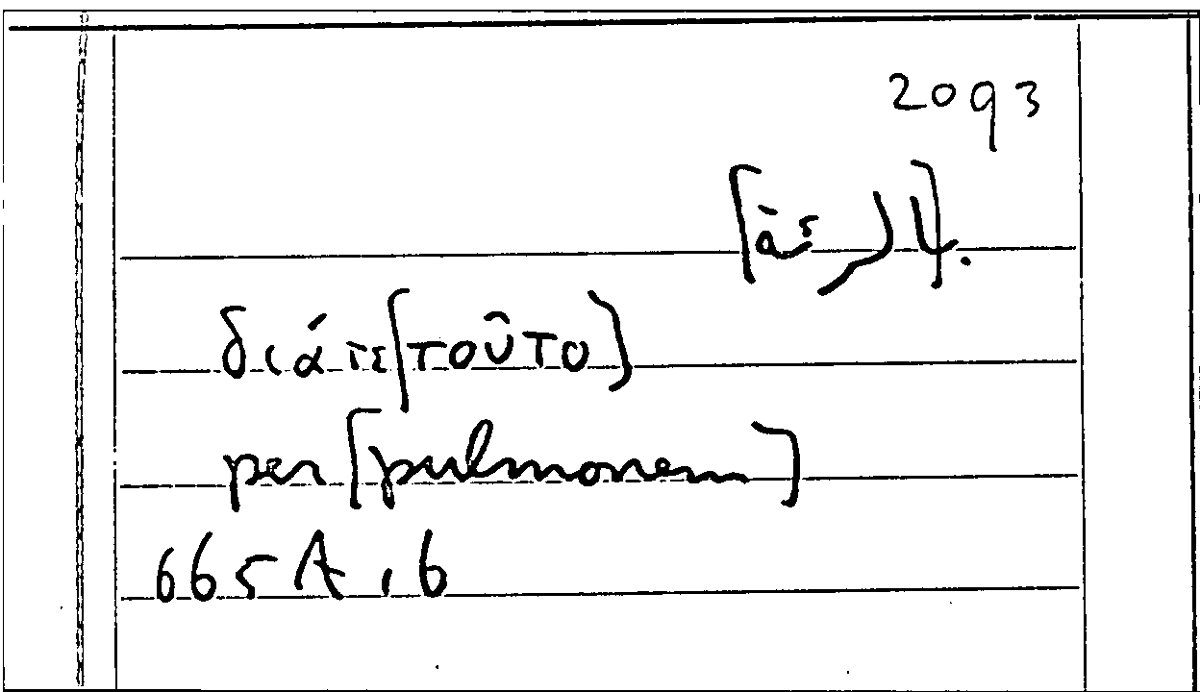 2093
διά τε [τοῦτο]
per [pulmonem]
665A, 6